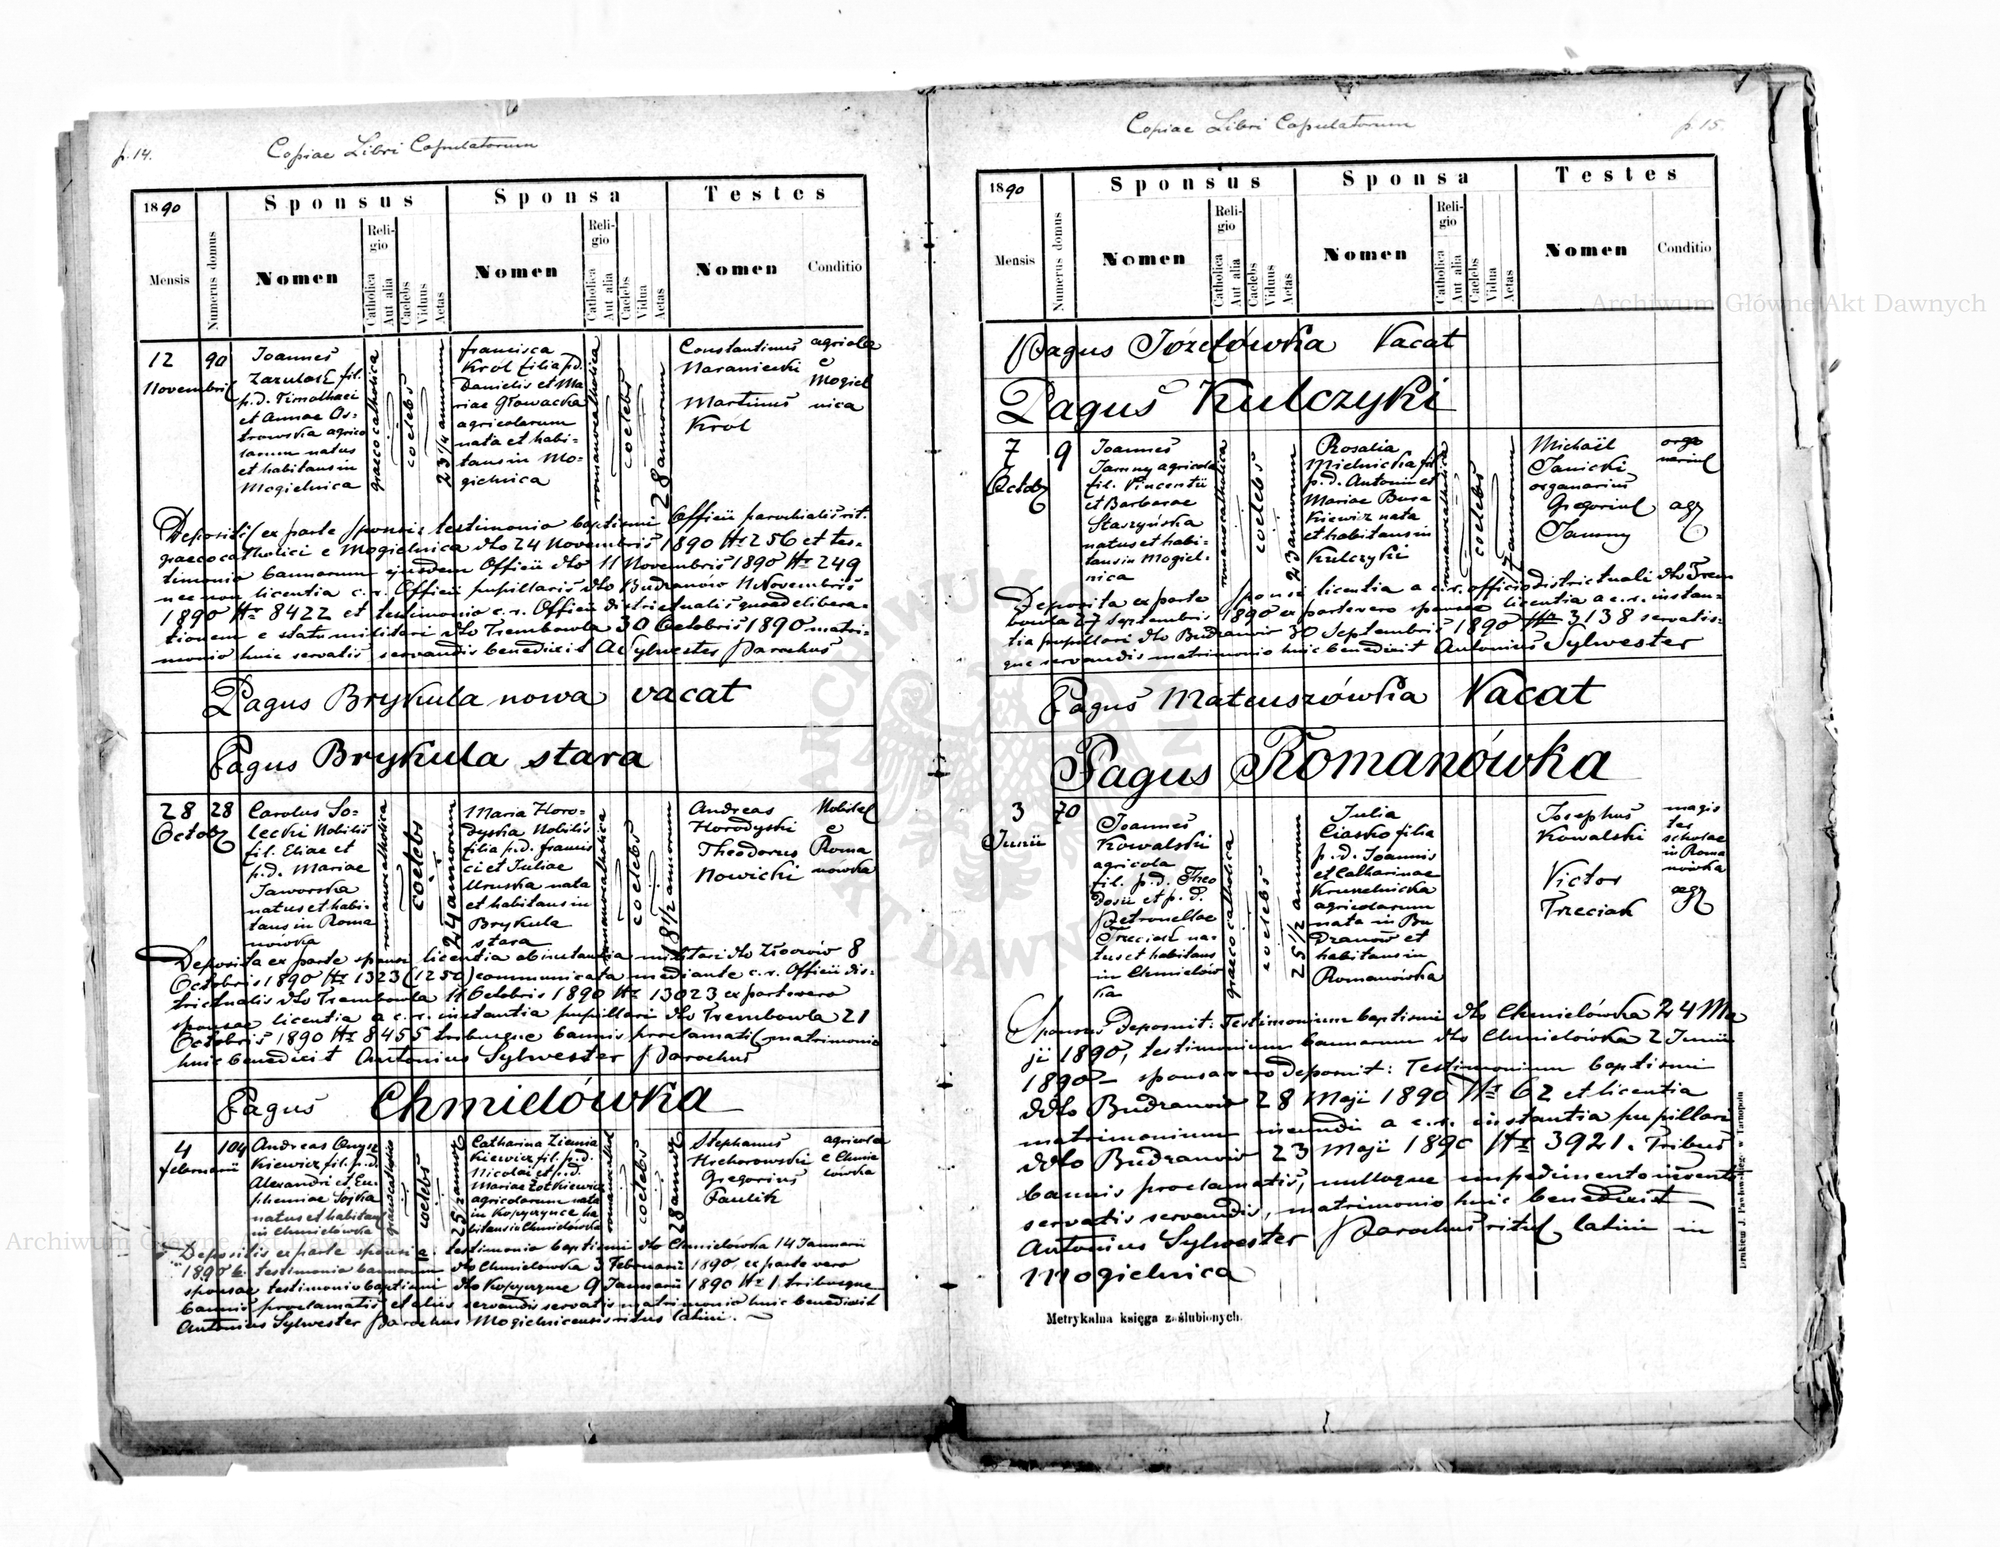 p. 14.
Copiae Libri Copulatorum
1890
Sponsus
Sponsa
Testes
Mensis
Numerus domus
Nomen
Religio
Catholica
Aut alia
Caelebs
Viduus
Aetas
Nomen
Religio
Catholica
Aut alia
Caelebs
Vidua
Aetas
Nomen
Conditio
12
Novembris
90
Joannes
Zazulak fil.
p.d. Timothaei
et Annae Os-
trowska agrico
larum natus
et habitans in
Mogielnica
graecocatholica
coelebs
23 1/4 annorum
Francisca
Król filia p.d.
Danielis et Ma
riae Głowacka
agricolarum
nata et habi-
tans in Mo-
gielnica
romanocatholica
coelebs
28 annorum
Constantinus
Naraniecki
Martinus
Król
agricolae
e
Mogiel
nica
Depositis ex parte sponsi: testimonio baptismi Officii parochialis rit.
graeco catholici e Mogielnica dto 24 Novembris 1890 Nr 256 et tes-
timonio bannorum ejusdem Officii dto 11 Novembris 1890 Nr 249
nec non licentia c. r. Officii pupillaris dto Budzanów 11 Novembris
1890 Nr 8422 et testimonio c. r. Officii districtualis quoad libera-
tionem e statu militari dto Trembowla 30 Octobris 1890 matri-
monio huic servatis servandis benedixit A Sylwester Parochus
Pagus Brykula nowa vacat
Pagus Brykula stara
28
Octob
28
Carolus So-
lecki Nobilis
fil. Eliae et
p.d. Mariae
Jaworska
natus et habi-
tans in Roma
nówka
romanocatholica
coelebs
24 annorum
Maria Horo-
dyska Nobilis
filia p.d. Francis
ci et Juliae
Uruska nata
et habitans in
Brykula
stara
romanocatholica
coelebs
18 1/2 annorum
Andreas
Horodyski
Theodorus
Nowicki
Nobiles
e
Roma
nówka
Deposita ex parte sponsi licentia ab instantia militari dto Złoczów 8
Octobris 1890 Nr 1323 (1252) communicata mediante c. r. Officii dis-
trictualis dto Trembowla 11 Octobris 1890 Nr 13023 ex parte vero
sponsae licentia a c. r. instantia pupillari dto Trembowla 21
Octobris 1890 Nr 8455 tribusque bannis proclamatis matrimonio
huic benedixit Antonius Sylwester Parochus
Pagus Chmielówka
4
Februarii
104
Andreas
kiewicz fil. p.d.
Alexandri et Eu-
phemiae Sojka
natus et habitans
in Chmielówka
graecocatholica
coelebs
25 annor
Catharina Ziemia
kiewicz fil. p.d.
Nicolai et p.d.
Mariae Żółkiewicz
agricolarum nata
in Kopyczynce ha
bitans in Chmielówka
romanocathol
coelebs
28 annor
Stephanus
Gregorius
Paulik
agricolae
e Chmie
lówka
Depositis ex parte sponsi a testimonio baptismi dto Chmielówka 14 Januarii
1890 b. testimonio bannorum dto Chmielowka 3 Februarii 1890, ex parte vero
sponsae testimonio baptismi dto Kopyczynce 9 Januarii 1890 Nr 1 tribusque
bannis proclamatis et aliis servandis servatis matrimonio huic benedixit
Antonius Sylwester Parochus Mogielnicensis ritus latini.
Copiae Libri Copulatorum
p. 15.
1890
Sponsus
Sponsa
Testes
Mensis
Numerus domus
Nomen
Religio
Catholica
Aut alia
Caelebs
Viduus
Aetas
Nomen
Religio
Catholica
Aut alia
Caelebs
Vidua
Aetas
Nomen
Conditio
Pagus Józefówka Vacat
Pagus Kulczyki
7
Octob
9
Joannes
Jamny agricola
fil. Vincentii
et Barbarae
Staszyńska
natus et habi-
tans in Mogiel-
nica
romanocatholica
coelebs
23 annorum
Rosalia
Mielnicka fil.
p.d. Antonii et
Mariae Bura
kiewicz nata
et habitans in
Kulczyki
romanocatholica
coelebs
17 annorum
Michaël
Janicki
organarius
Gregorius
Jamny
orga
narius
agr
Deposita ex parte sponsi licentia a c. r. officio districtuali dto Trem
bowla 27 Septembris 1890 ex parte vero sponsae licentia a c. r. instan-
tia pupillari dto Budzanów 30 Septembris 1890 Nr 3138 servatis-
que servandis matrimonio huic benedixit Antonius Sylwester
Pagus Mateuszówka Vacat
Pagus Romanówka
3
Junii
70
Joannes
Kowalski
agricola
fil. p.d. Theo
dosii et p.d.
Petronellae
Trzeciak na-
tus et habitans
in Chmielów
ka
graecocatholica
coelebs
25 1/2 annorum
Julia
Ciasko filia
p.d. Joannis
et Catharinae
Kruszelnicka
agricolarum
nata in Bu
dzanów et
habitans in
Romanówka
Josephus
Kowalski
Victor
Trzeciak
magis
ter
scholae
in Roma
nówka
agr
Sponsus deposuit: Testimonium baptismi dto Chmielówka 24 Ma
ji 1890, testimonium bannorum dto Chmielówka 2 Junii
1890 – sponsa vero deposuit: Testimonium baptismi
ddto Budzanów 28 Maji 1890 Nr 62 et licentia
matrimonium ineundi a c. r. instantia pupillari
ddto Budzanów 23 Maji 1890 Nr 3921. Tribus
bannis proclamatis, nulloque impedimento invento
servatis servandis, matrimonio huic benedixit
Antonius Sylwester Parochus ritus latini in
Mogielnica
Metrykalna księga zaślubionych.
Drukiem J. Pawłowskiego w Tarnopolu
Archiwum Główne Akt Dawnych
Archiwum Główne Akt Dawnych
ARCHIWUM GŁÓWNE AKT DAWNYCH